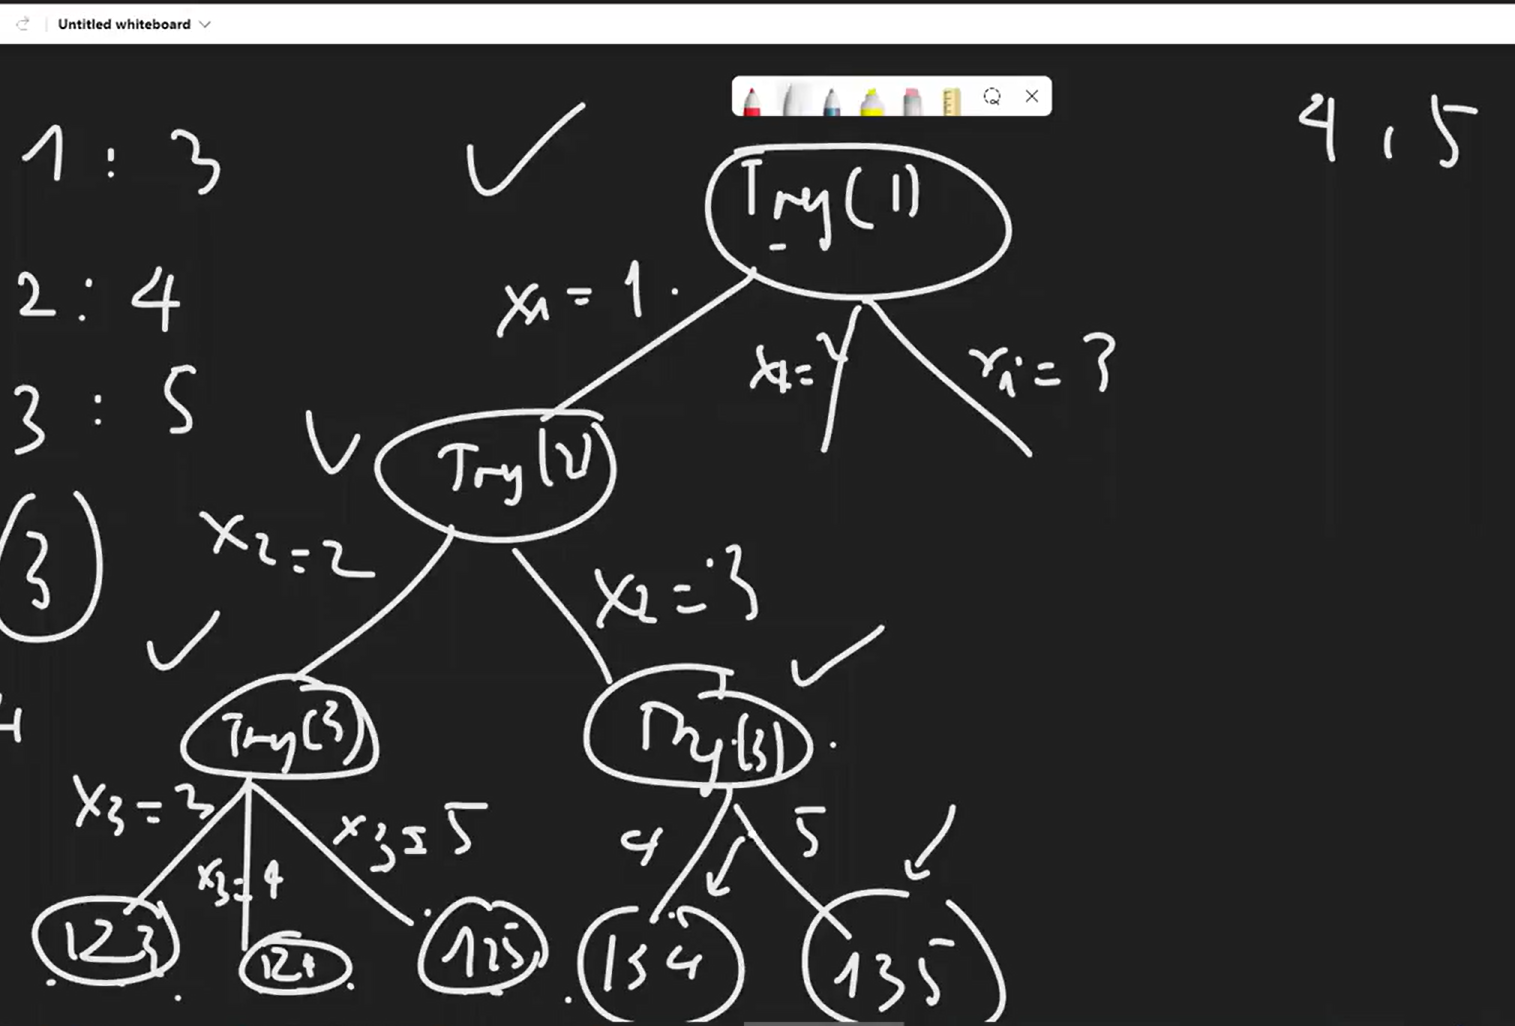 Untitled whiteboard
4 , 5
1 : 3
Try(1)
x1 = 1
2 : 4
x1 = 2
x1 = 3
3 : 5
Try(2)
x2 = 2
x2 = 3
(3)
Try(3)
Try(3)
4
x3 = 3
x3 = 4
x3 = 5
4
5
123
124
125
134
135